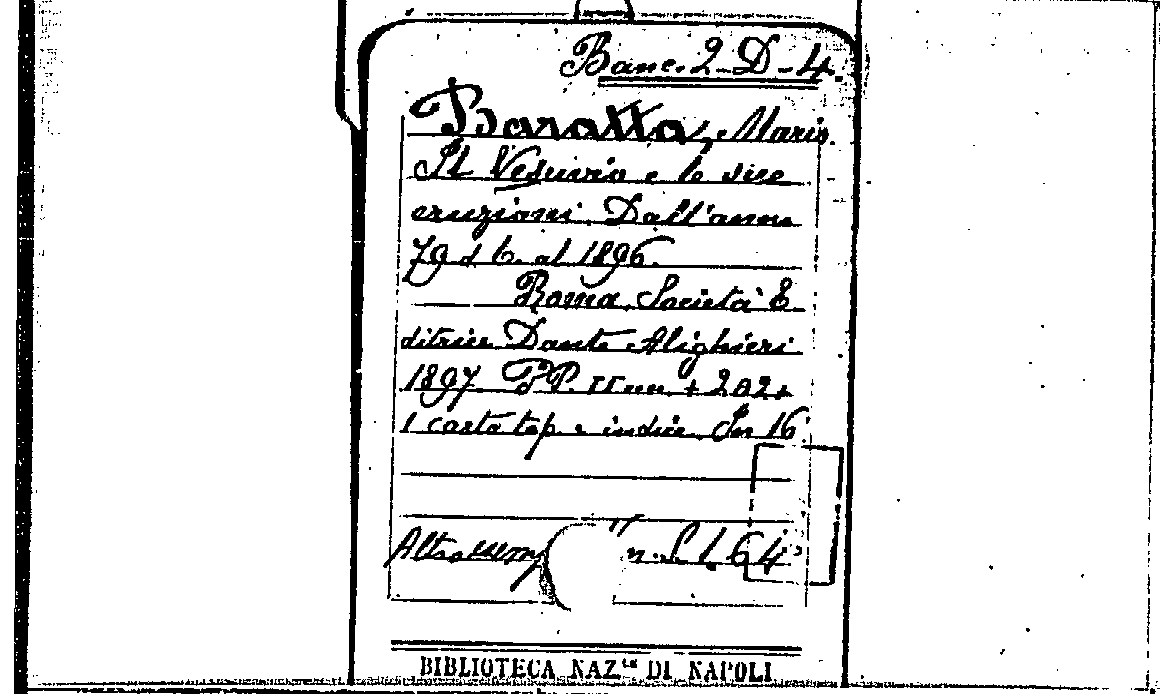 Banc. 2-D-4.
Baratta, Mario.
Il Vesuvio e le sue
eruzioni Dall'anno
79 d C. al 1896.
Roma Società E
ditrice Dante Alighieri
1897 PP. + 202 +
1 carta top e indice In 16°
Altro esem n.
BIBLIOTECA NAZ.LE DI NAPOLI